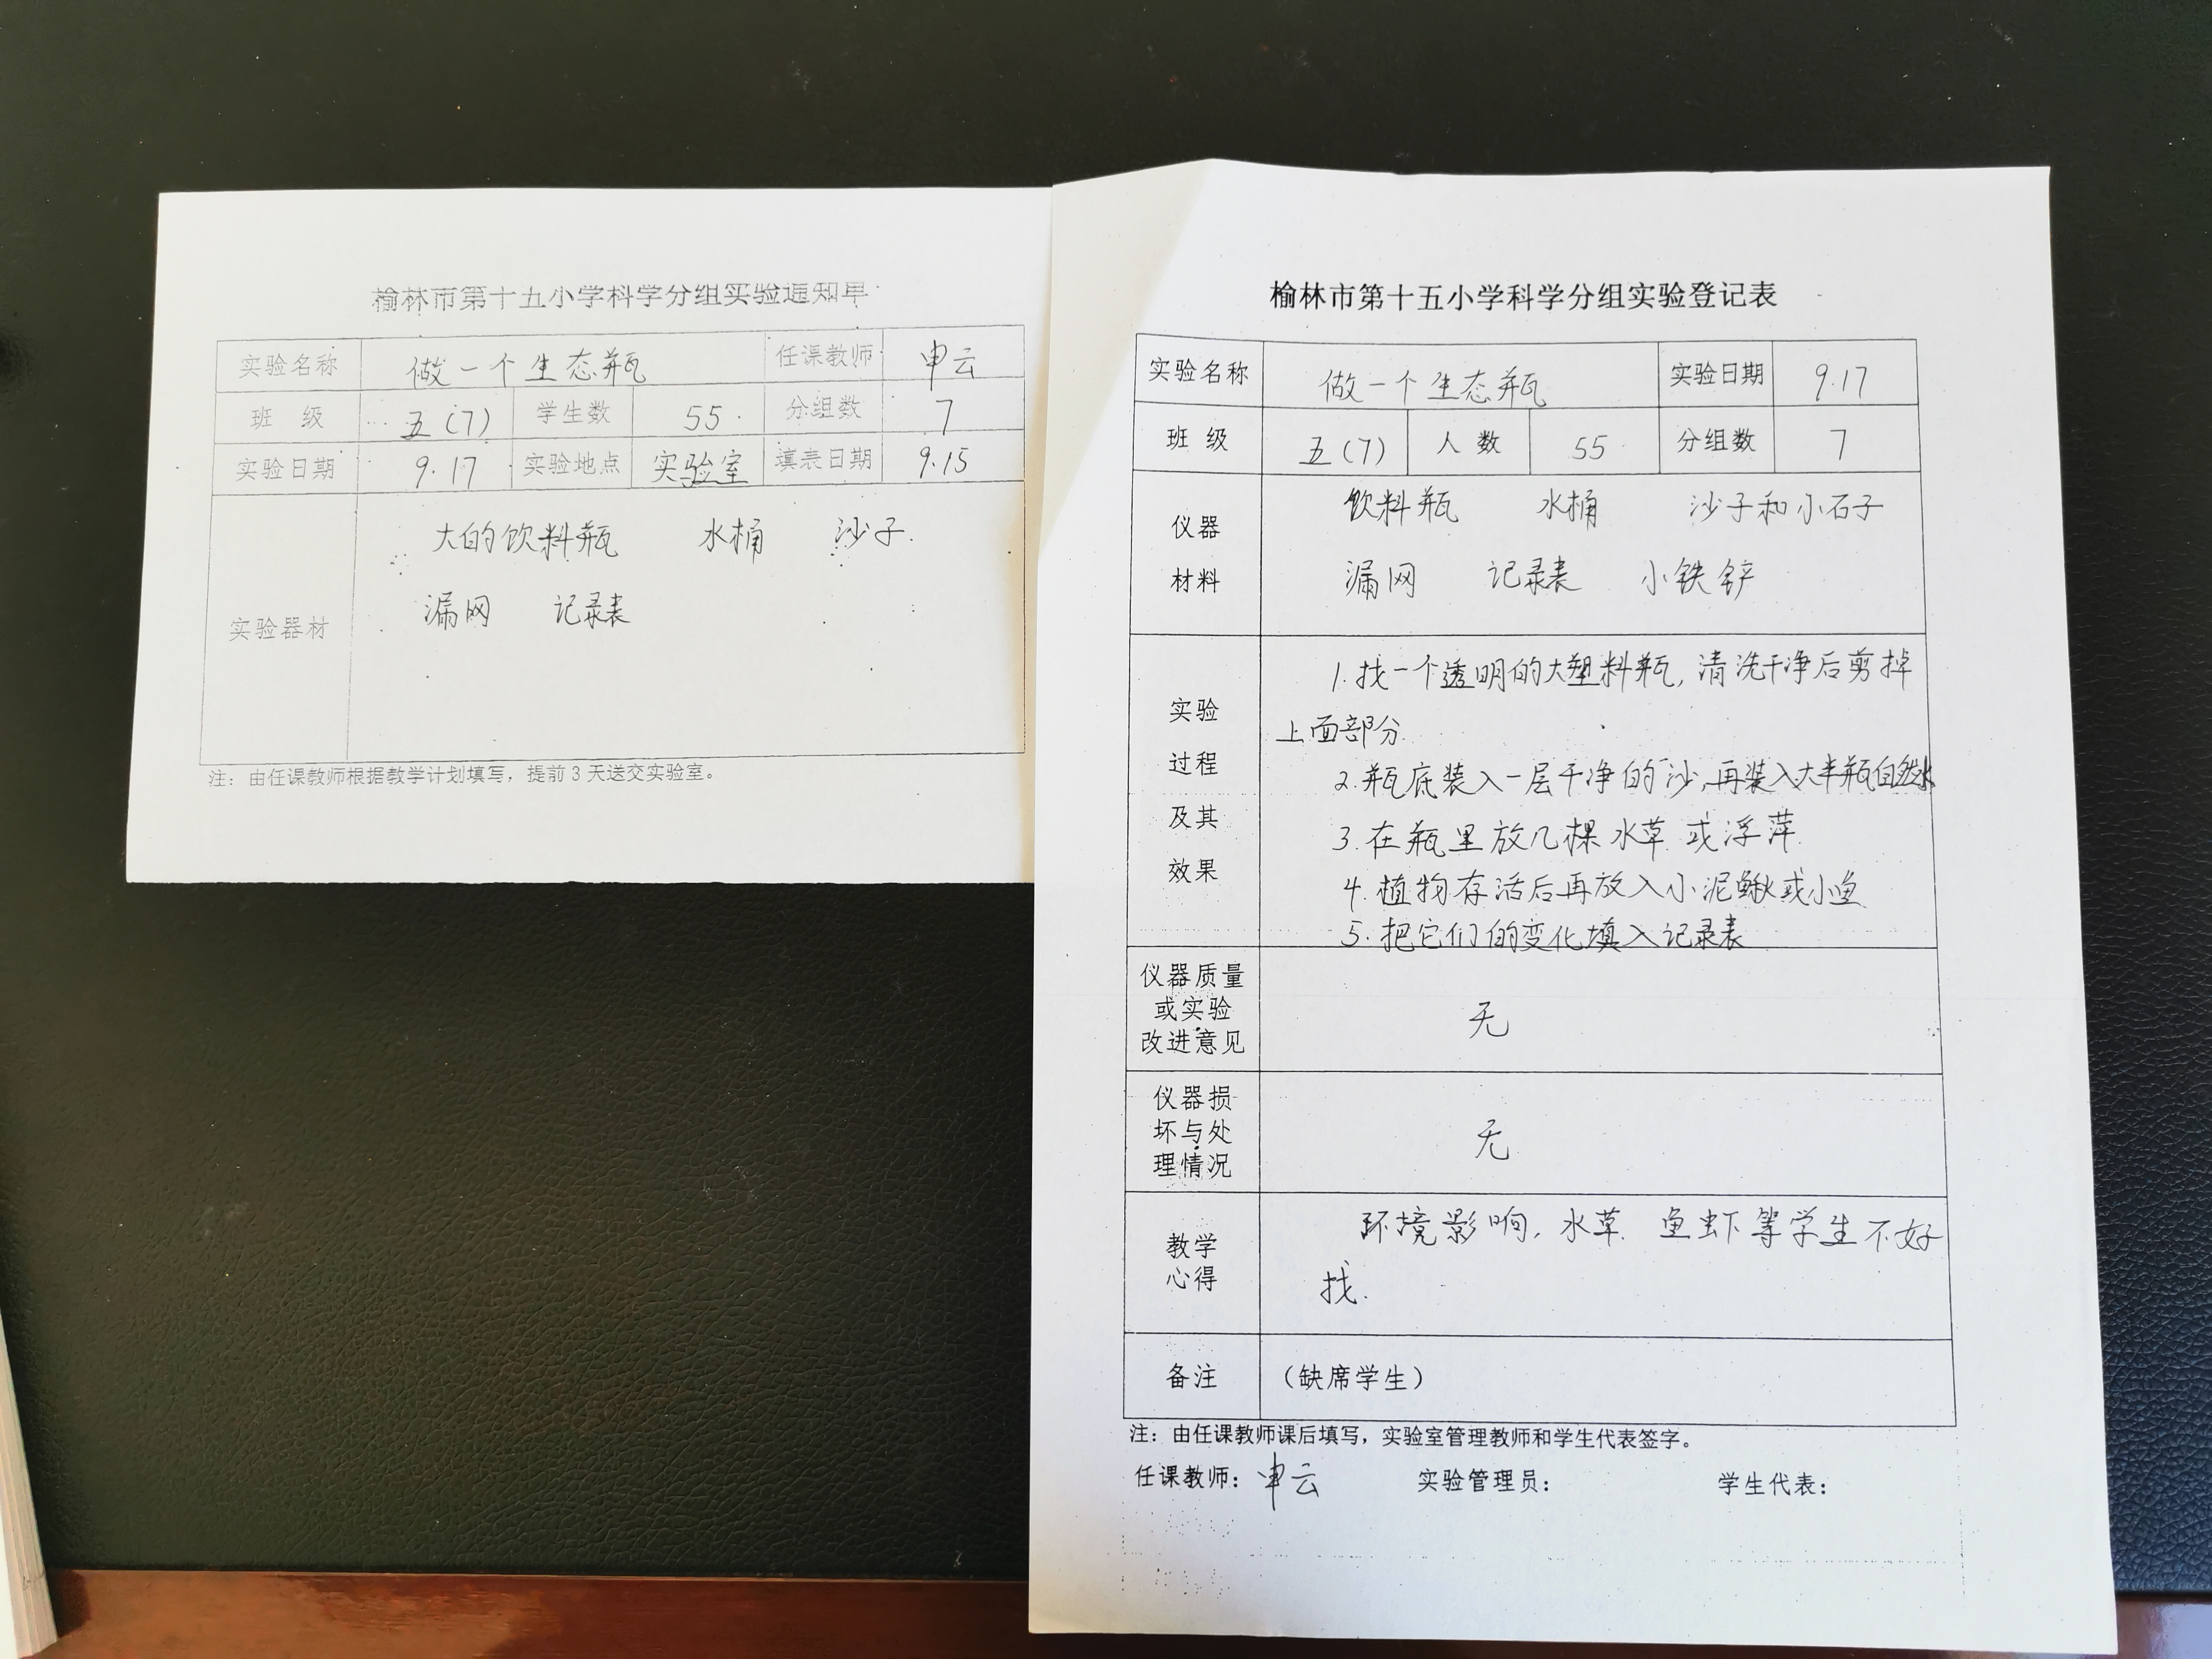 榆林市第十五小学科学分组实验通知单
实验名称 做一个生态瓶 任课教师 申云
班 级 五(7) 学生数 55 分组数 7
实验日期 9.17 实验地点 实验室 填表日期 9.15
大的饮料瓶 水桶 沙子
实验器材
漏网 记录表
注：由任课教师根据教学计划填写，提前3天送交实验室。
榆林市第十五小学科学分组实验登记表
实验名称 做一个生态瓶 实验日期 9.17
班 级 五(7) 人 数 55 分组数 7
仪器
材料
饮料瓶 水桶 沙子和小石子
漏网 记录表 小铁铲
实验
过程
及其
效果
1.找一个透明的大塑料瓶,清洗干净后剪掉
上面部分.
2.瓶底装入一层干净的沙,再装入大半瓶自然水
3.在瓶里放几棵水草或浮萍.
4.植物存活后再放入小泥鳅或小鱼
5.把它们的变化填入记录表
仪器质量
或实验
改进意见
无
仪器损
坏与处
理情况
无
教学
心得
环境影响,水草.鱼虾等学生不好
找.
备注 （缺席学生）
注：由任课教师课后填写，实验室管理教师和学生代表签字。
任课教师：申云 实验管理员： 学生代表：